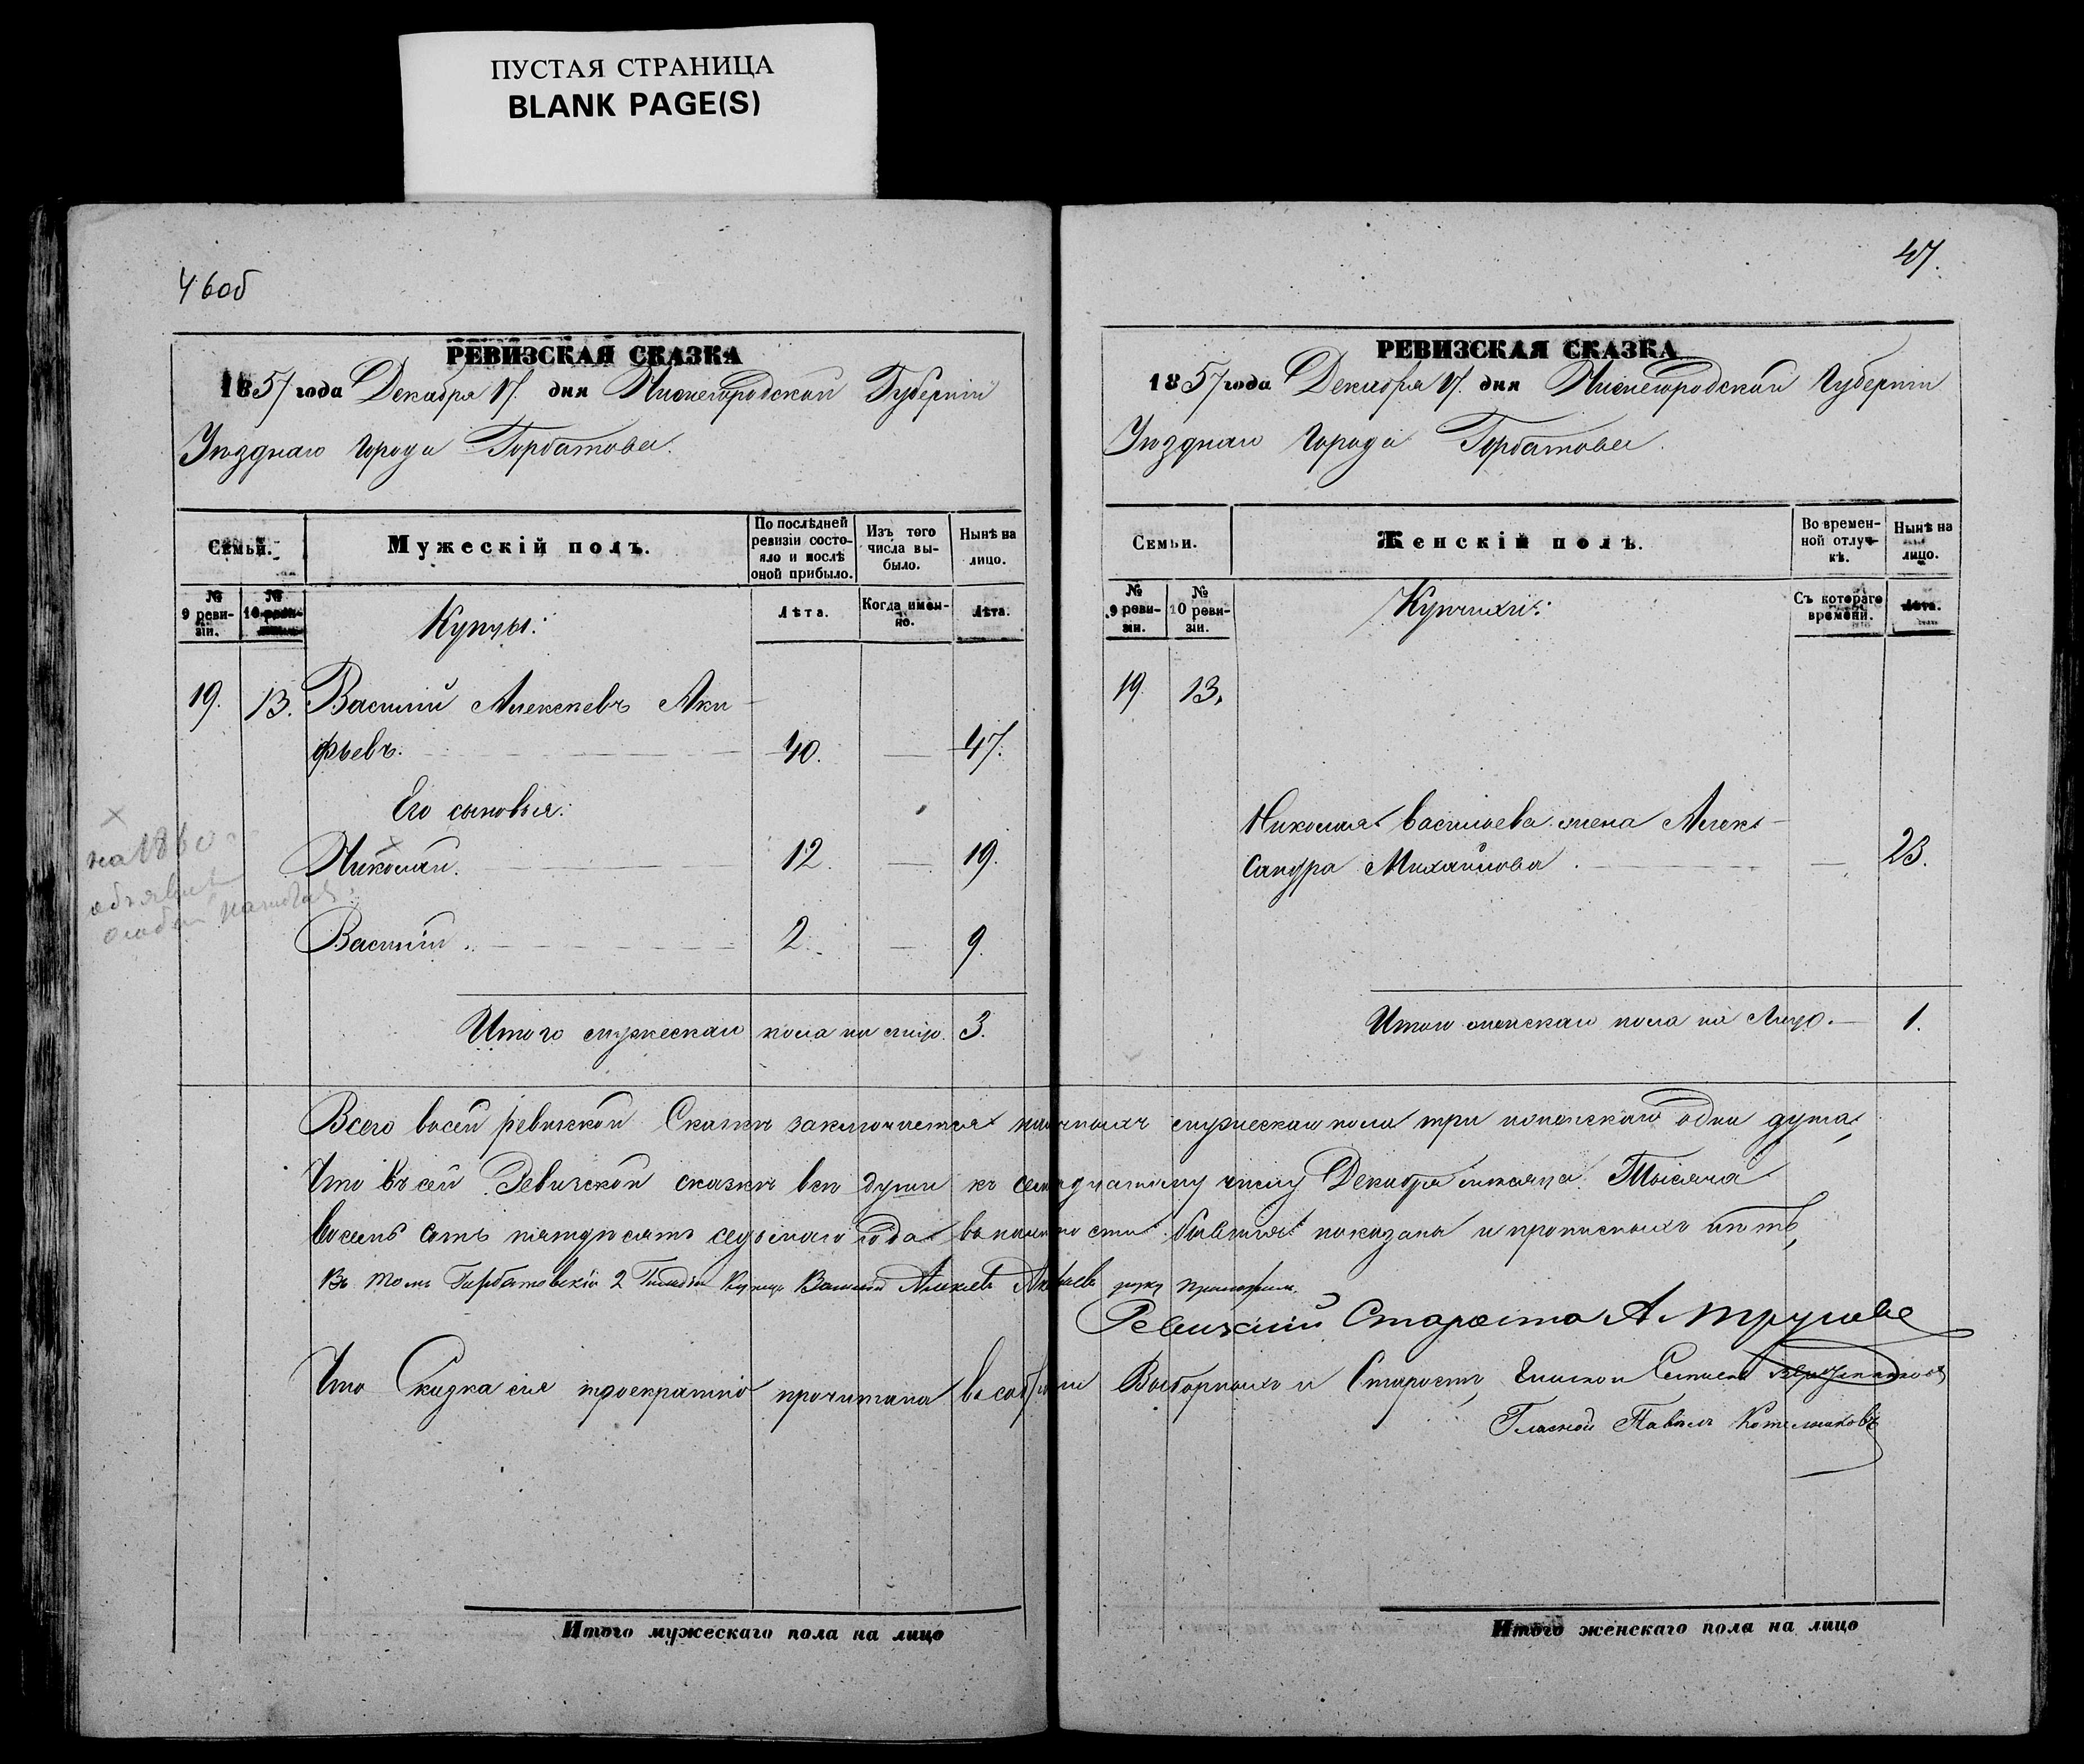 ПУСТАЯ СТРАНИЦА
BLANK PAGE(S)
46об
РЕВИЗСКАЯ СКАЗКА
1857 года Декабря 17. дня Нижегородской Губерніи
Уѣзднаго города Горбатова.
Семьи.
Мужескій полъ.
По послѣдней ревизіи состояло и послѣ оной прибыло.
Изъ того числа выбыло.
Нынѣ на лицо.
№ 9 ревизіи.
№ 10 ревизіи.
Купцы:
Лѣта.
Когда именно.
Лѣта.
19. 13. Василий Алексѣевъ Аки-
фьевъ. 40. — 47.
Его сыновья:
Николай. 12. — 19.
Василій. 2. — 9.
Итого мужескаго пола на лицо. 3.
на 1860
объявилъ
47.
РЕВИЗСКАЯ СКАЗКА
1857 года Декабря 17. дня Нижегородской Губерніи
Уѣзднаго Города Горбатова.
Семьи.
Женскій полъ.
Во временной отлучкѣ.
Нынѣ на лицо.
№ 9 ревизіи.
№ 10 ревизіи.
Купчихи:
Съ котораго времени.
Лѣта.
19. 13.
Николая Васильева жена Алек-
сандра Михайлова. — 23.
Итого женскаго пола на Лицо. — 1.
Всего в сей ревизской Сказкѣ заключается наличныхъ мужескаго пола три и женскаго одна душа,
Что въ сей Ревизской сказкѣ всѣ души къ семнадцатому числу Декабря мѣсяца Тысяча
восемь сотъ пятдѣсятъ седьмаго года въ наличности бывшія показаны и прописныхъ нѣтъ,
Въ томъ Горбатовскій 2 Гильдіи Купецъ Василій Алексѣевъ Акифьевъ руку приложилъ.
Ревизкій Староста А.
Что Сказка сія троекратно прочитана въ собраніи Выборныхъ и Старостъ,
Гласной Павелъ Котельниковъ
Итого мужескаго пола на лицо
Итого женскаго пола на лицо